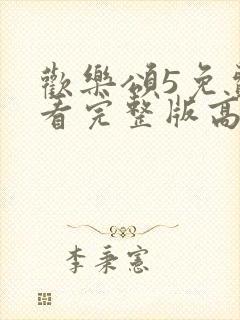 歡樂頌5免費
看完整版高
李秉憲